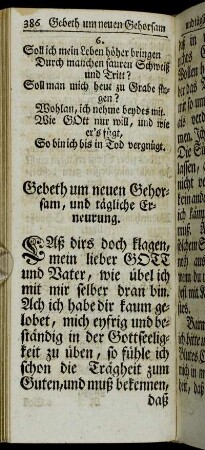 386 Gebeth um neuen Gehorsam
6.
Soll ich mein Leben höher bringen
Durch manchen sauren Schweiß
und Tritt?
Soll man mich heut zu Grabe sin-
gen?
Wohlan, ich nehme beydes mit.
Wie GOtt nur will, und wie
er's fügt,
So bin ich bis in Tod vergnügt.
Gebeth um neuen Gehor-
sam, und tägliche Er-
neurung.
LAß dirs doch klagen,
mein lieber GOTT
und Vater, wie übel ich
mit mir selber dran bin.
Ach ich habe dir kaum ge-
lobet, mich eyfrig und be-
ständig in der Gottselig-
keit zu üben, so fühle ich
schon die Trägheit zum
Guten, und muß bekennen,
daß